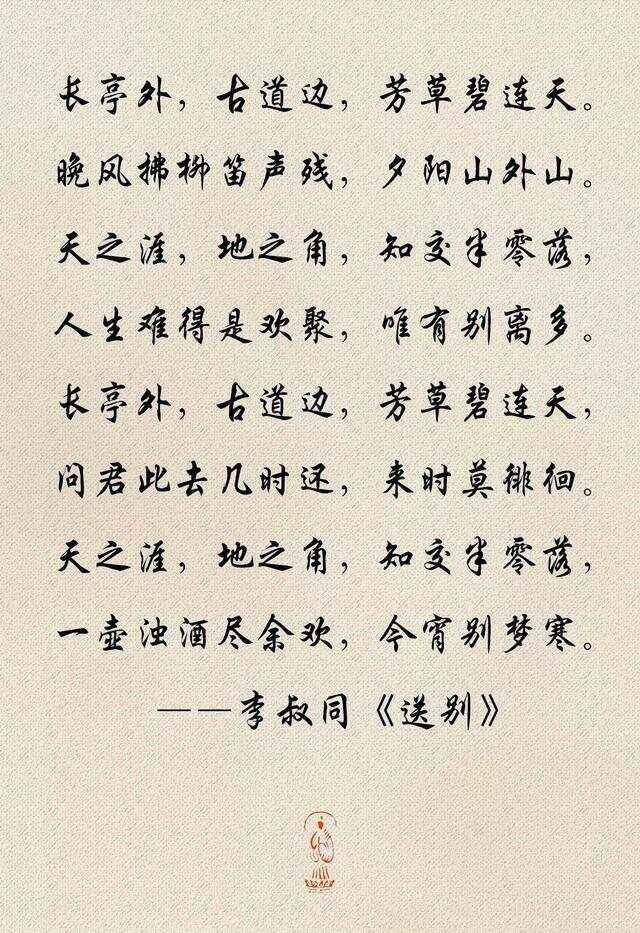 长亭外，古道边，芳草碧连天。
晚风拂柳笛声残，夕阳山外山。
天之涯，地之角，知交半零落，
人生难得是欢聚，唯有别离多。
长亭外，古道边，芳草碧连天，
问君此去几时还，来时莫徘徊。
天之涯，地之角，知交半零落，
一壶浊酒尽余欢，今宵别梦寒。
——李叔同《送别》